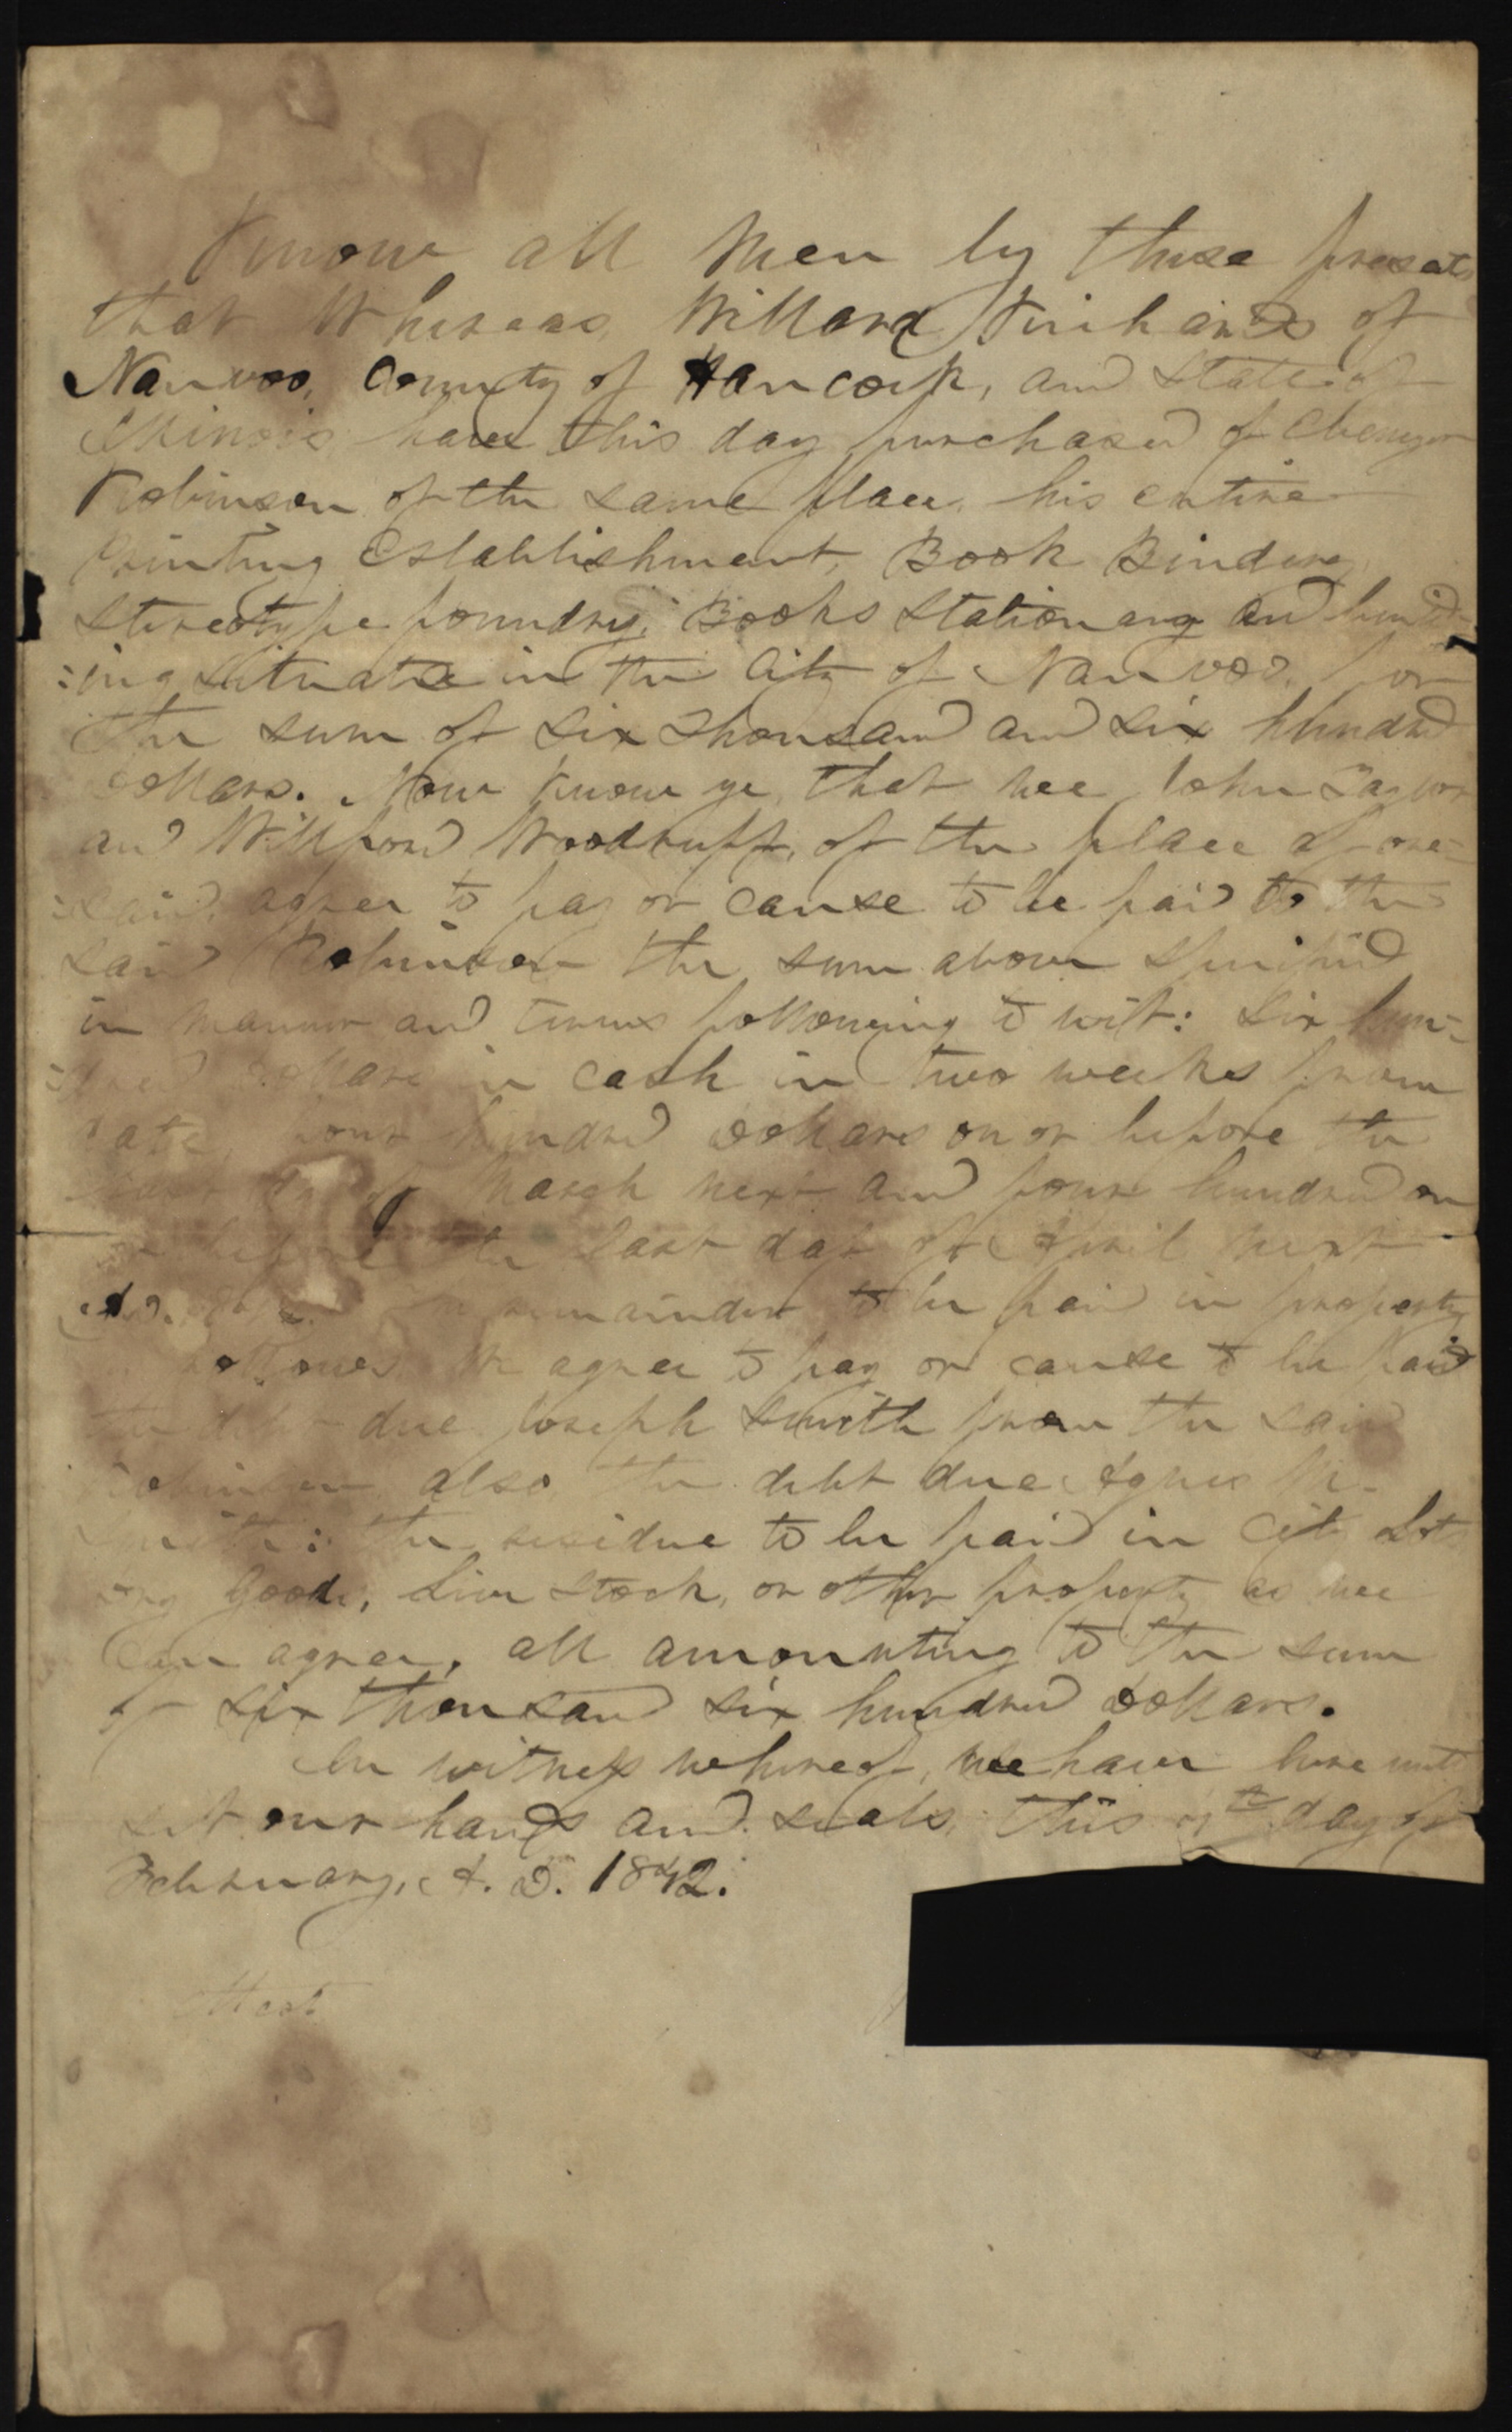 Know all Men by these presents
that Whereas Willard Richards of
Nauvoo, County of Hancock, and State of
Illinois have this day purchased of Ebenezer
Robinson of the same place, his entire
Printing Establishment, Book Bindery,
Stereotype foundry, Books Stationary and build-
:ing situate in the City of Nauvoo, for
the sum of Six Thousand and six hundred
Dollars. Now know ye, that wee John Taylor
and Willford Woodruff, of the place afore=
=said, agree to pay or cause to be paid to the
said Robinson the sum above specified
in manner and times following to wit: Six hun=
=dred Dollars in cash in two weeks from
date, four hundred Dollars on or before the
March next and four hundred on
or before the last day of April next
remainder to be paid in property
as follows. We agree to pay or cause to be paid
the debt due Joseph Smith from the said
Robinson also the debt due Agnes M.
Smith: the residue to be paid in City Lots
Dry Goods, Live Stock, or other property as wee
can agree, all amounting to the sum
of six thousand six hundred Dollars.
In witness whereof, wee have here unto
set our hands and seals, this day of
February, A. D. 1842.
Attest